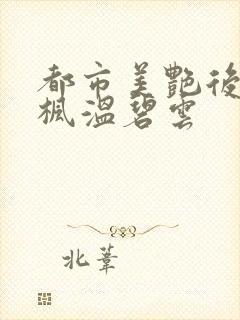 都市美艷後
楓溫碧雲
北葦